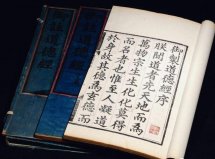 御製道德經序
朕聞道者先天地而爲
萬物宗生生化化莫得
而名者也惟至人凝道
於身故其德爲玄德而
註道德經